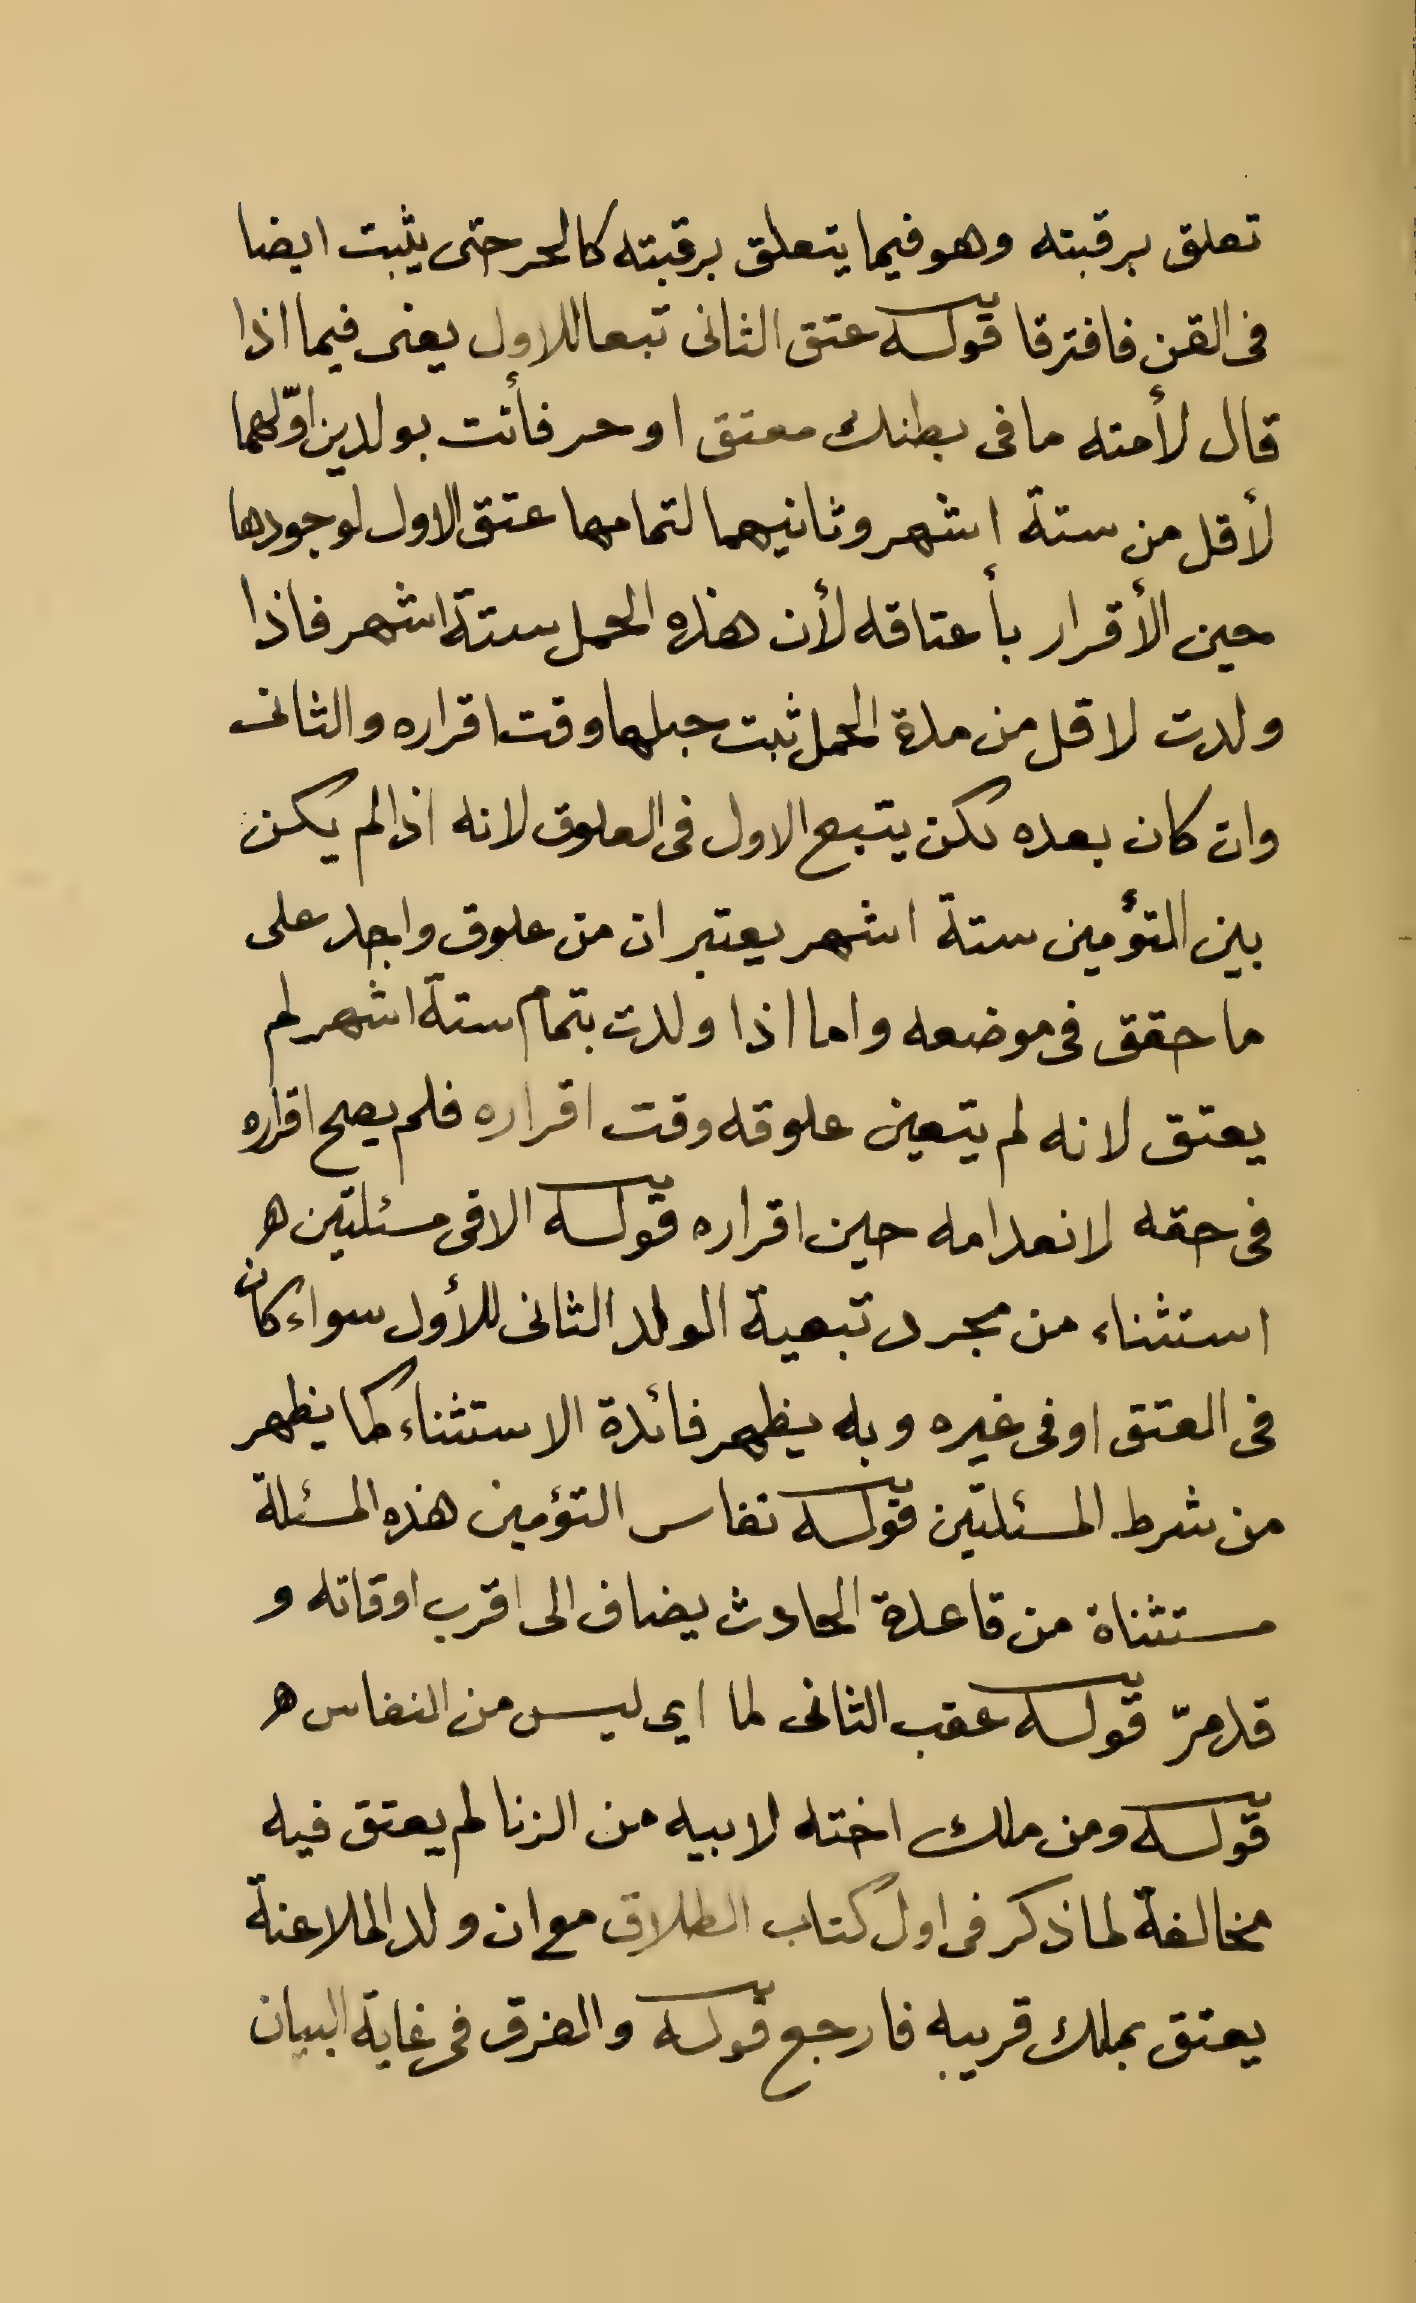 تعلق برقبته وهو فيما يتعلق برقبته كالحر حتى يثبت ايضا
فى القن فافترقا قوله عتق الثانى تبعا للاول يعنى فيما اذا
قال لأمته ما فى بطنك معتق او حر فأتت بولدين اوّلهما
لأقل من ستة اشهر وثانيهما لتمامها عتق الاول لوجودها
حين الأقرار بأعتاقه لأن هذه الحمل ستة اشهر فاذا
ولدت لا قل من مدة الحمل ثبت حبلها وقت اقراره والثانى
وان كان بعده لكن يتبع الاول فى العلوق لانه اذا لم يكن
بين التؤمين ستة اشهر يعتبر ان من علوق واحد على
ما حقق فى موضعه واما اذا ولدت بتمام ستة اشهر لم
يعتق لانه لم يتعين علوقه وقت اقراره فلم يصح اقراره
فى حقه لانعدامه حين اقراره قوله الا فى مسئلتين ه
استثناء من مجرد تبعية الولد الثانى للأول سواء كان
فى العتق او فى غيره وبه يظهر فائدة الاستثناء كما يظهر
من شرط المسئلتين قوله نفاس التؤمين هذه المسئلة
مستثناة من قاعدة الحادث يضاف الى اقرب اوقاته و
قد مرّ قوله عقب الثانى لما اى ليس من النفاس ه
قوله ومن ملك اخته لابيه من الزنا لم يعتق فيه
مخالفة لما ذكر فى اول كتاب الطلاق مع ان ولد الملاعنة
يعتق بملك قريبه فارجع قوله والفرق فى غاية البيان